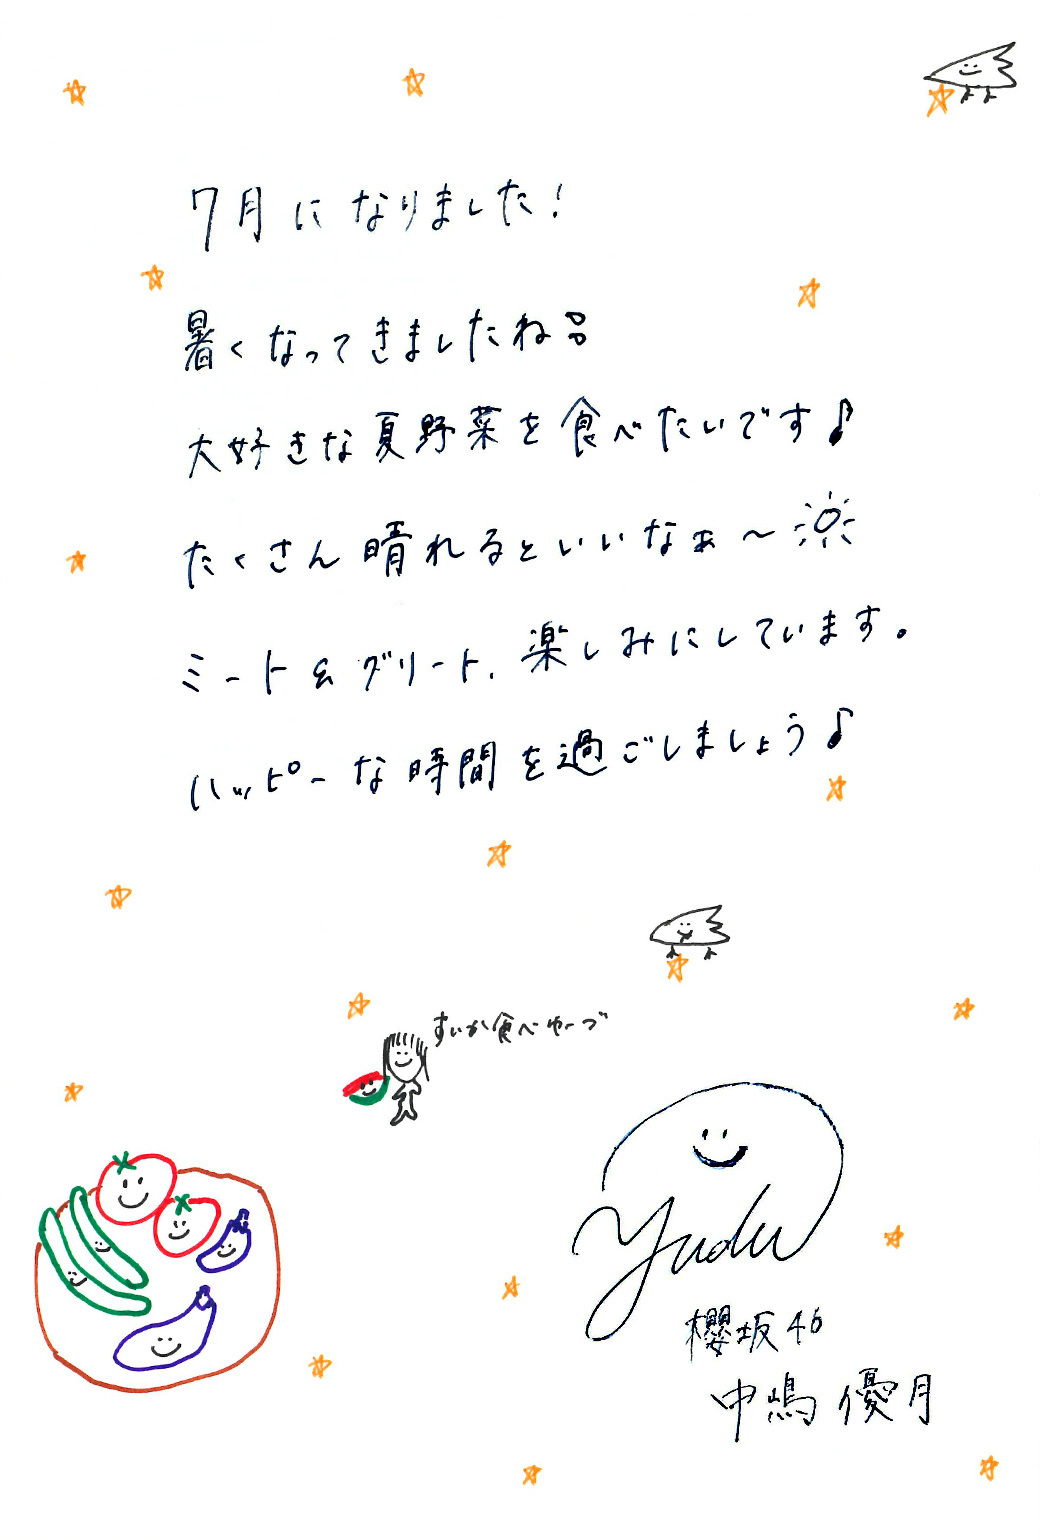 7月になりました!
暑くなってきましたね
大好きな夏野菜を食べたいです♪
たくさん晴れるといいなぁ〜
ミート&グリート、楽しみにしています。
ハッピーな時間を過ごしましょう♪
すいか食べゆーづ
yudu
櫻坂46
中嶋優月